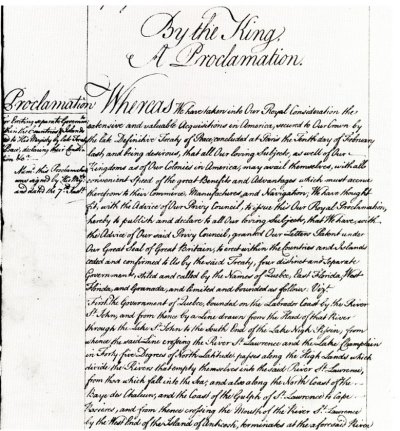 By the King,
A Proclamation.
Proclamation
for erecting separate Governments
within the Countries & Islands
ceded to His Majesty by late Treaty
Peace, declaring their Constitu-
tion &c.
Mem: this Proclamation
was signed by His Maj.
and dated the 7th
Whereas We have taken into Our Royal Consideration the
extensive and valuable Acquisitions in America, secured to Our Crown by
the late Definitive Treaty of Peace, concluded at Paris the Tenth day of February
last, and being desirous, that all Our loving Subjects, as well of Our
Kingdoms as of Our Colonies in America, may avail themselves, with all
convenient Speed, of the great Benefits and Advantages which must accrue
therefrom to their Commerce, Manufactures, and Navigation; We have thought
fit, with the Advice of Our Privy Council, to issue this Our Royal Proclamation,
hereby to publish and declare to all Our loving Subjects, that We have, with
the Advice of Our said Privy Council, granted Our Letters Patent under
Our Great Seal of Great Britain, to erect within the Countries and Islands
ceded and confirmed to Us by the said Treaty, four distinct and separate
Governments, stiled and called by the Names of Quebec, East Florida, West
Florida, and Granada, and limited and bounded as follows Vizt.
First. The Government of Quebec, bounded on the Labrador Coast by the River
St. John, and from thence by a Line drawn from the Head of that River
through the Lake St. John to the South End of the Lake Nigh Pissin, from
whence the said Line crossing the River St. Lawrence and the Lake Champlain
in Forty five Degrees of North Latitude, passes along the High Lands which
divide the Rivers that empty themselves into the said River St. Lawrence,
from those which fall into the Sea; and also along the North Coast of the
Baye des Chaleurs, and the Coast of the Gulph of St. Lawrence to Cape
Rosieres, and from thence crossing the Mouth of the River St. Lawrence
by the West End of the Island of Anticosti, terminates at the aforesaid River